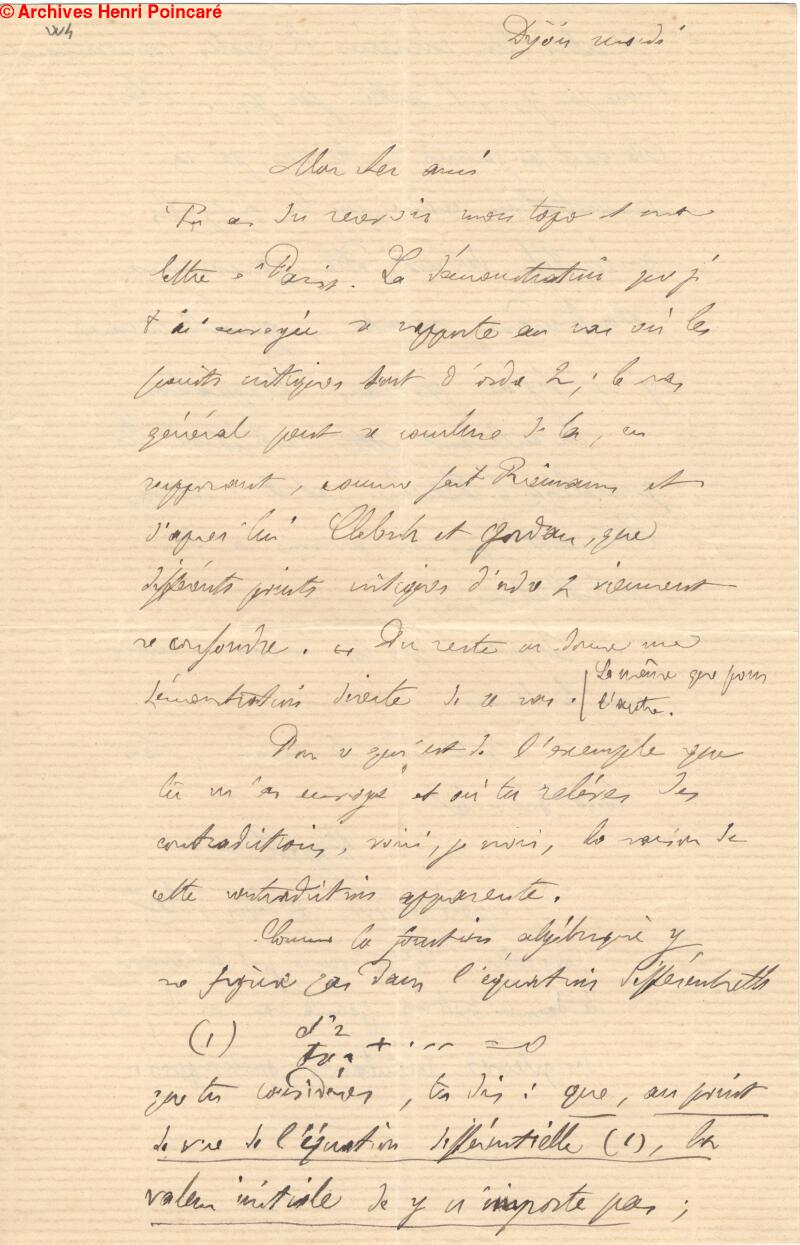 © Archives Henri Poincaré
Dijon mardi
Mon cher ami
Tu as du recevoir mon topo et ma
lettre à Paris. La démonstration que je
t'ai envoyée se rapporte au cas où les
points critiques sont d'ordre 2 ; le cas
général peut se conclure de là, en
supposant, comme fait Riemann et
d'après lui Clebsch et Gordan, que
différents points critiques d'ordre 2 viennent
se confondre. Du reste on donne une
démonstration directe de ce cas. La même que pour
l'autre.
Pour ce qui est de l'exemple que
tu m'as envoyé et où tu relèves des
contradictions, voici, je crois, la raison de
cette contradiction apparente.
Comme la fonction algébrique y
ne figure pas dans l'équation différentielle
(1) d²z/dx² + ... = 0
que tu considères, tu dis : que, au point
de vue de l'équation différentielle (1), la
valeur initiale de y n'importe pas ;